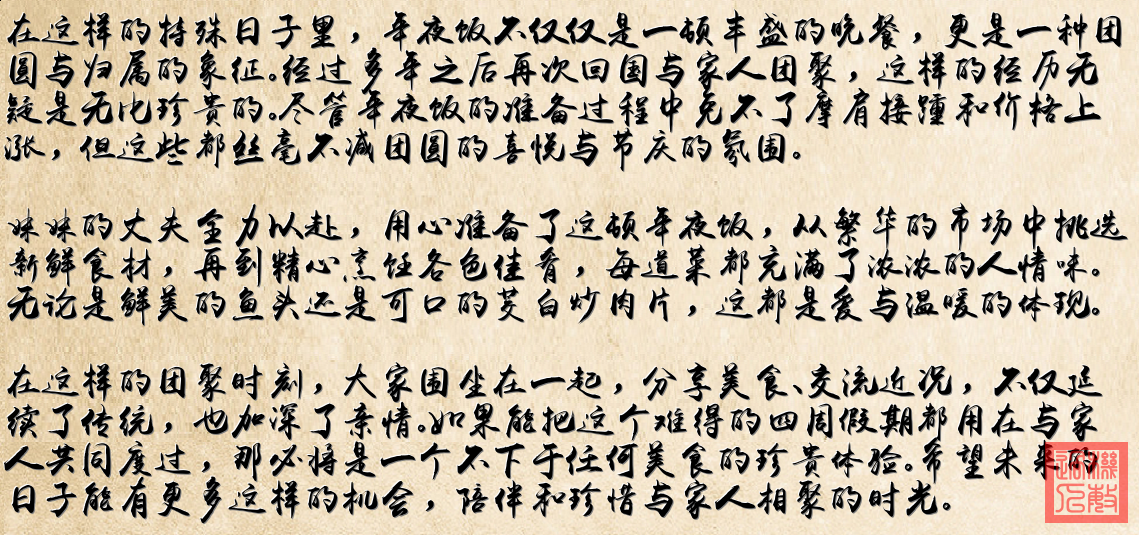 在这样的特殊日子里，年夜饭不仅仅是一顿丰盛的晚餐，更是一种团
圆与归属的象征。经过多年之后再次回国与家人团聚，这样的经历无
疑是无比珍贵的。尽管年夜饭的准备过程中免不了摩肩接踵和价格上
涨，但这些都丝毫不减团圆的喜悦与节庆的氛围。
妹妹的丈夫全力以赴，用心准备了这顿年夜饭，从繁华的市场中挑选
新鲜食材，再到精心烹饪各色佳肴，每道菜都充满了浓浓的人情味。
无论是鲜美的鱼头还是可口的茭白炒肉片，这都是爱与温暖的体现。
在这样的团聚时刻，大家围坐在一起，分享美食、交流近况，不仅延
续了传统，也加深了亲情。如果能把这个难得的四周假期都用在与家
人共同度过，那必将是一个不下于任何美食的珍贵体验。希望未来的
日子能有更多这样的机会，陪伴和珍惜与家人相聚的时光。